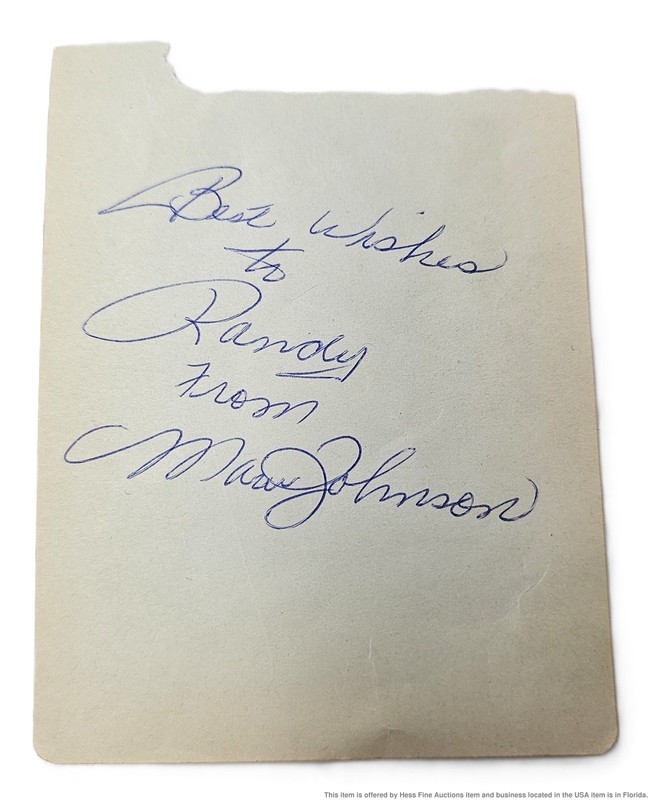 Best Wishes
to
Randy
From
Johnson
This item is offered by Hess Fine Auctions item and business located in the USA item is in Florida.